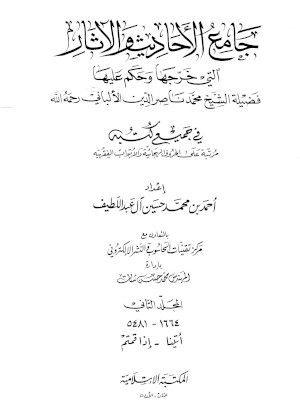 جامع الأحاديث والآثار
التي خرجها وحكم عليها
فضيلة الشيخ محمد ناصر الدين الألباني رحمه الله
في جميع كتبه
مرتبة على الحروف الهجائية والأبواب الفقهية
إعداد
أحمد بن محمد حسين آل عبد اللطيف
بالتعاون مع
مركز تقنيات الحاسوب والنشر الإلكتروني
بإدارة
المهندس محمد
المجلد الثاني
١٦٦٤ - ٥٤٨١
أتينا - إذا قمتم
المكتبة الإسلامية